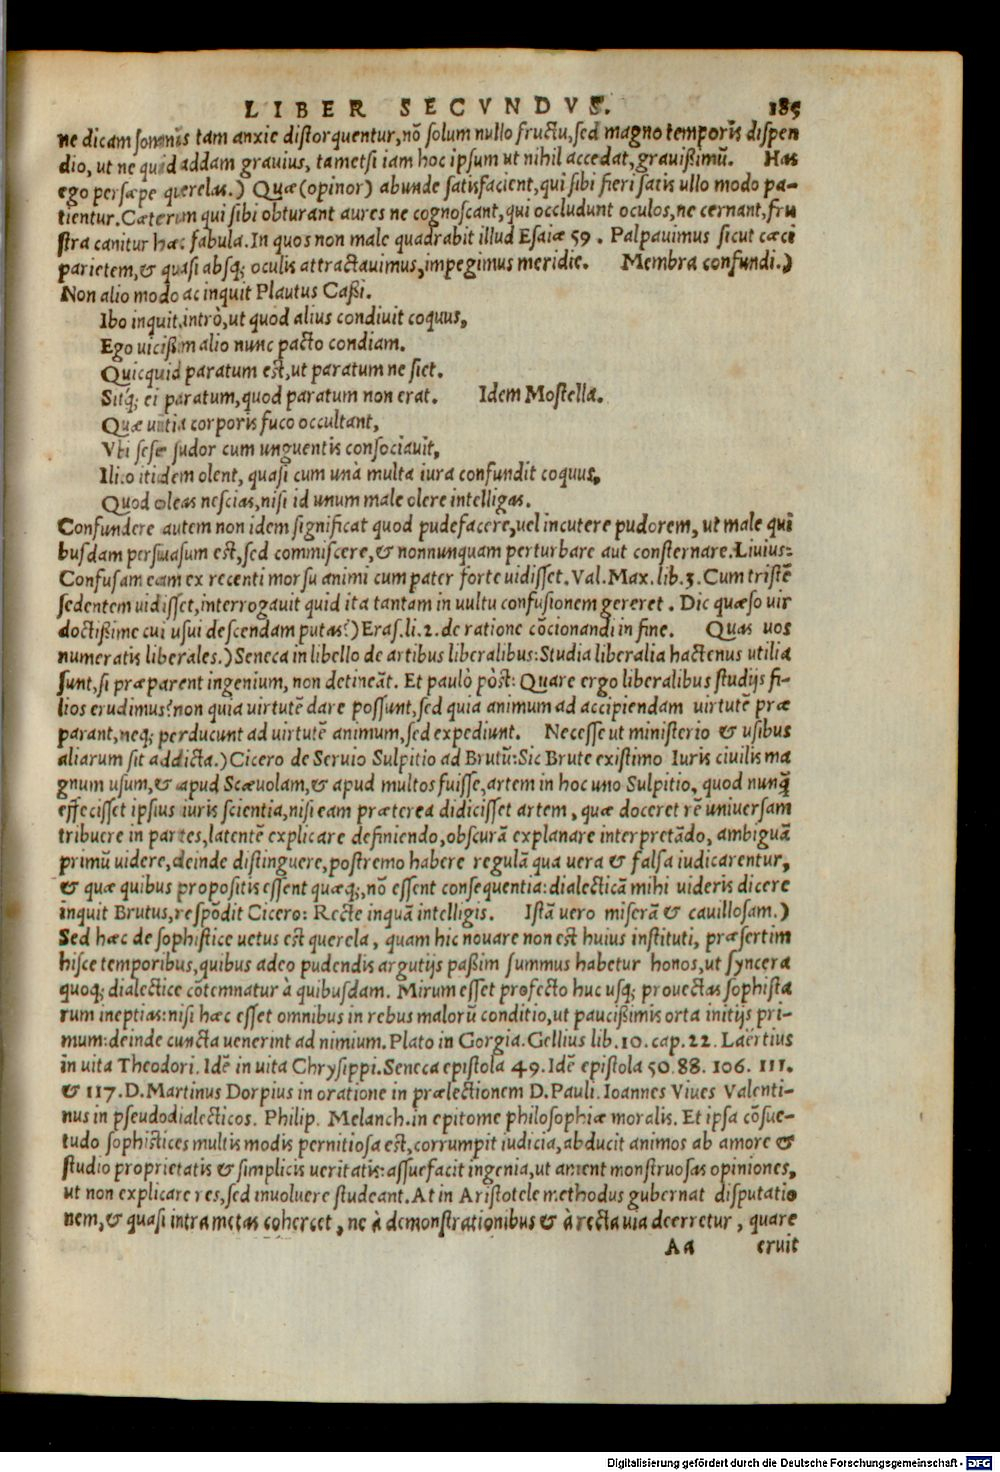 LIBER SECVNDVS. 185
ne dicam somnijs tam anxie distorquentur, nõ solum nullo fructu, sed magno temporis dispen
dio, ut ne quid addam grauius, tametsi iam hoc ipsum ut nihil accedat, grauißimũ. Has
ego persæpe querelas.) Quæ (opinor) abunde satisfacient, qui sibi fieri satis ullo modo pa-
tientur. Cæterum qui sibi obturant aures ne cognoscant, qui occludunt oculos, ne cernant, fru
stra canitur hæc fabula. In quos non male quadrabit illud Esaiæ 59. Palpauimus sicut cæci
parietem, & quasi absq; oculis attractauimus, impegimus meridie. Membra confundi.)
Non alio modo ac inquit Plautus Caßi.
Ibo inquit, intrò, ut quod alius condiuit coquus,
Ego uicißim alio nunc pacto condiam.
Quicquid paratum est, ut paratum ne siet.
Sitq́; ei paratum, quod paratum non erat. Idem Mostella.
Quæ uitia corporis fuco occultant,
Vbi sese sudor cum unguentis consociauit,
Ilico itidem olent, quasi cum unà multa iura confundit coquus,
Quod oleas nescias, nisi id unum male olere intelligas.
Confundere autem non idem significat quod pudefacere, uel incutere pudorem, ut male qui
busdam persuasum est, sed commiscere, & nonnunquam perturbare aut consternare. Liuius:
Confusam eam ex recenti morsu animi cum pater forte uidisset. Val. Max. lib. 3. Cum tristẽ
sedentem uidisset, interrogauit quid ita tantam in uultu confusionem gereret. Dic quæso uir
doctißime cui usui descendam putas?) Eras. li. 2. de ratione cõcionandi in fine. Quas uos
numeratis liberales.) Seneca in libello de artibus liberalibus: Studia liberalia hactenus utilia
sunt, si præparent ingenium, non detineãt. Et paulò pòst: Quare ergo liberalibus studijs fi-
lios erudimus? non quia virtutẽ dare possunt, sed quia animum ad accipiendam uirtutẽ præ
parant, neq; perducunt ad uirtutẽ animum, sed expediunt. Necesse ut ministerio & usibus
aliarum sit addicta.) Cicero de Seruio Sulpitio ad Brutũ: Sic Brute existimo Iuris ciuilis ma
gnum usum, & apud Scæuolam, & apud multos fuisse, artem in hoc uno Sulpitio, quod nunq̃
effecisset ipsius iuris scientia, nisi eam præterea didicisset artem, quæ doceret rẽ uniuersam
tribuere in partes, latentẽ explicare definiendo, obscurã explanare interpretãdo, ambiguã
primũ uidere, deinde distinguere, postremo habere regulã qua uera & falsa iudicarentur,
& quæ quibus propositis essent quæq;, nõ essent consequentia: dialecticã mihi uideris dicere
inquit Brutus, respõdit Cicero: Recte inquã intelligis. Istã uero miserã & cauillosam.)
Sed hæc de sophistice uetus est querela, quam hic nouare non est huius instituti, præsertim
hisce temporibus, quibus adeo pudendis argutijs paßim summus habetur honos, ut syncera
quoq; dialectice cõtemnatur à quibusdam. Mirum esset profecto huc usq; prouectas sophista
rum ineptias: nisi hæc esset omnibus in rebus malorũ conditio, ut paucißimis orta initijs pri-
mum: deinde cuncta uenerint ad nimium. Plato in Gorgia. Gellius lib. 10. cap. 22. Laërtius
in uita Theodori. Idẽ in uita Chrysippi. Seneca epistola 49. Idẽ epistola 50. 88. 106. 111.
& 117. D. Martinus Dorpius in oratione in prælectionem D. Pauli. Ioannes Viues Valenti-
nus in pseudodialecticos. Philip. Melanch. in epitome philosophiæ moralis. Et ipsa cõsue-
tudo sophistices multis modis pernitiosa est, corrumpit iudicia, abducit animos ab amore &
studio proprietatis & simplicis ueritatis: assuefacit ingenia, ut ament monstruosas opiniones,
ut non explicare res, sed inuoluere studeant. At in Aristotele methodus gubernat disputatio
nem, & quasi intra metas cohercet, ne à demonstrationibus & à recta uia deerretur, quare
Aa eruit
Digitalisierung gefördert durch die Deutsche Forschungsgemeinschaft - DFG